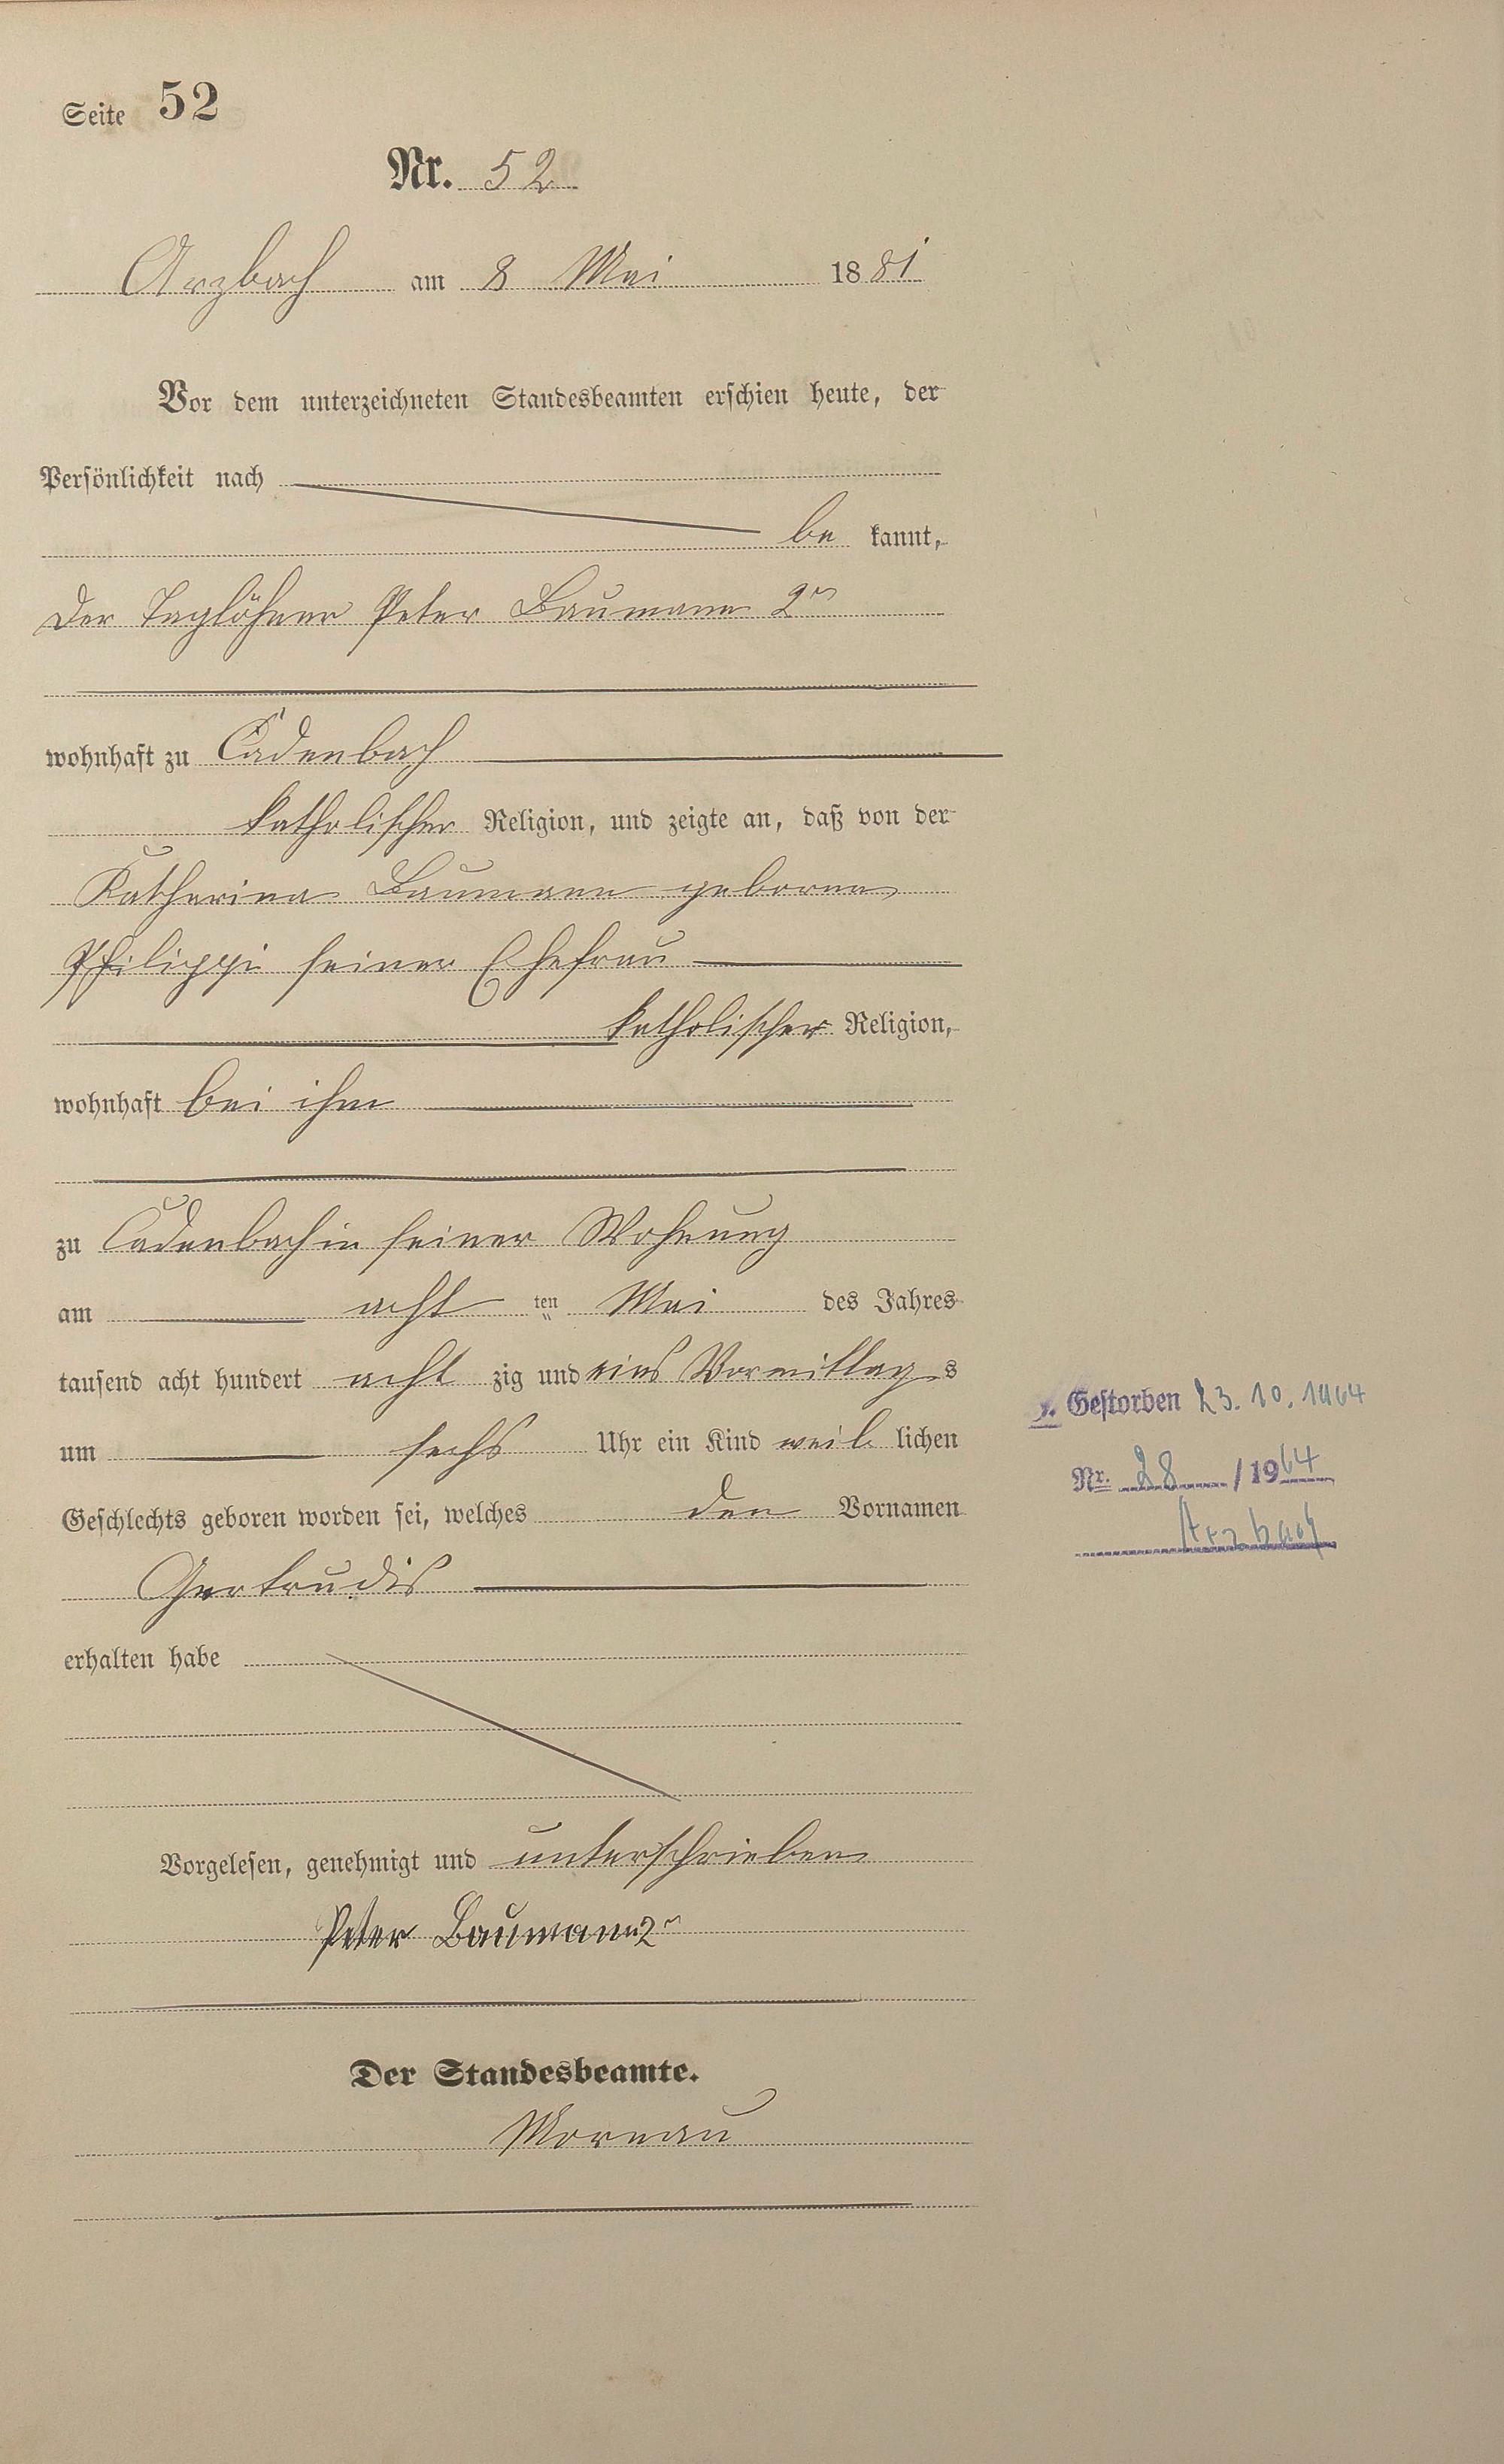 Seite 52
Nr. 52
Arzbach am 8 Mai 1881
Vor dem unterzeichneten Standesbeamten erschien heute, der
Persönlichkeit nach
be kannt,
der Taglöhner Peter Baumann 2r
wohnhaft zu Cadenbach
katholischer Religion, und zeigte an, daß von der
Katharina Baumann geborne
Philippi seiner Ehefrau
katholischer Religion,
wohnhaft bei ihm
zu Cadenbach in seiner Wohnung
am acht ten Mai des Jahres
tausend acht hundert acht zig und eins Vormittag s
um sechs Uhr ein Kind weib lichen
Geschlechts geboren worden sei, welches den Vornamen
Gertrudis
erhalten habe
Vorgelesen, genehmigt und unterschrieben
Peter Baumann 2r
Der Standesbeamte.
Gestorben 23.10.1964
Nr. 28 / 1964
Arzbach